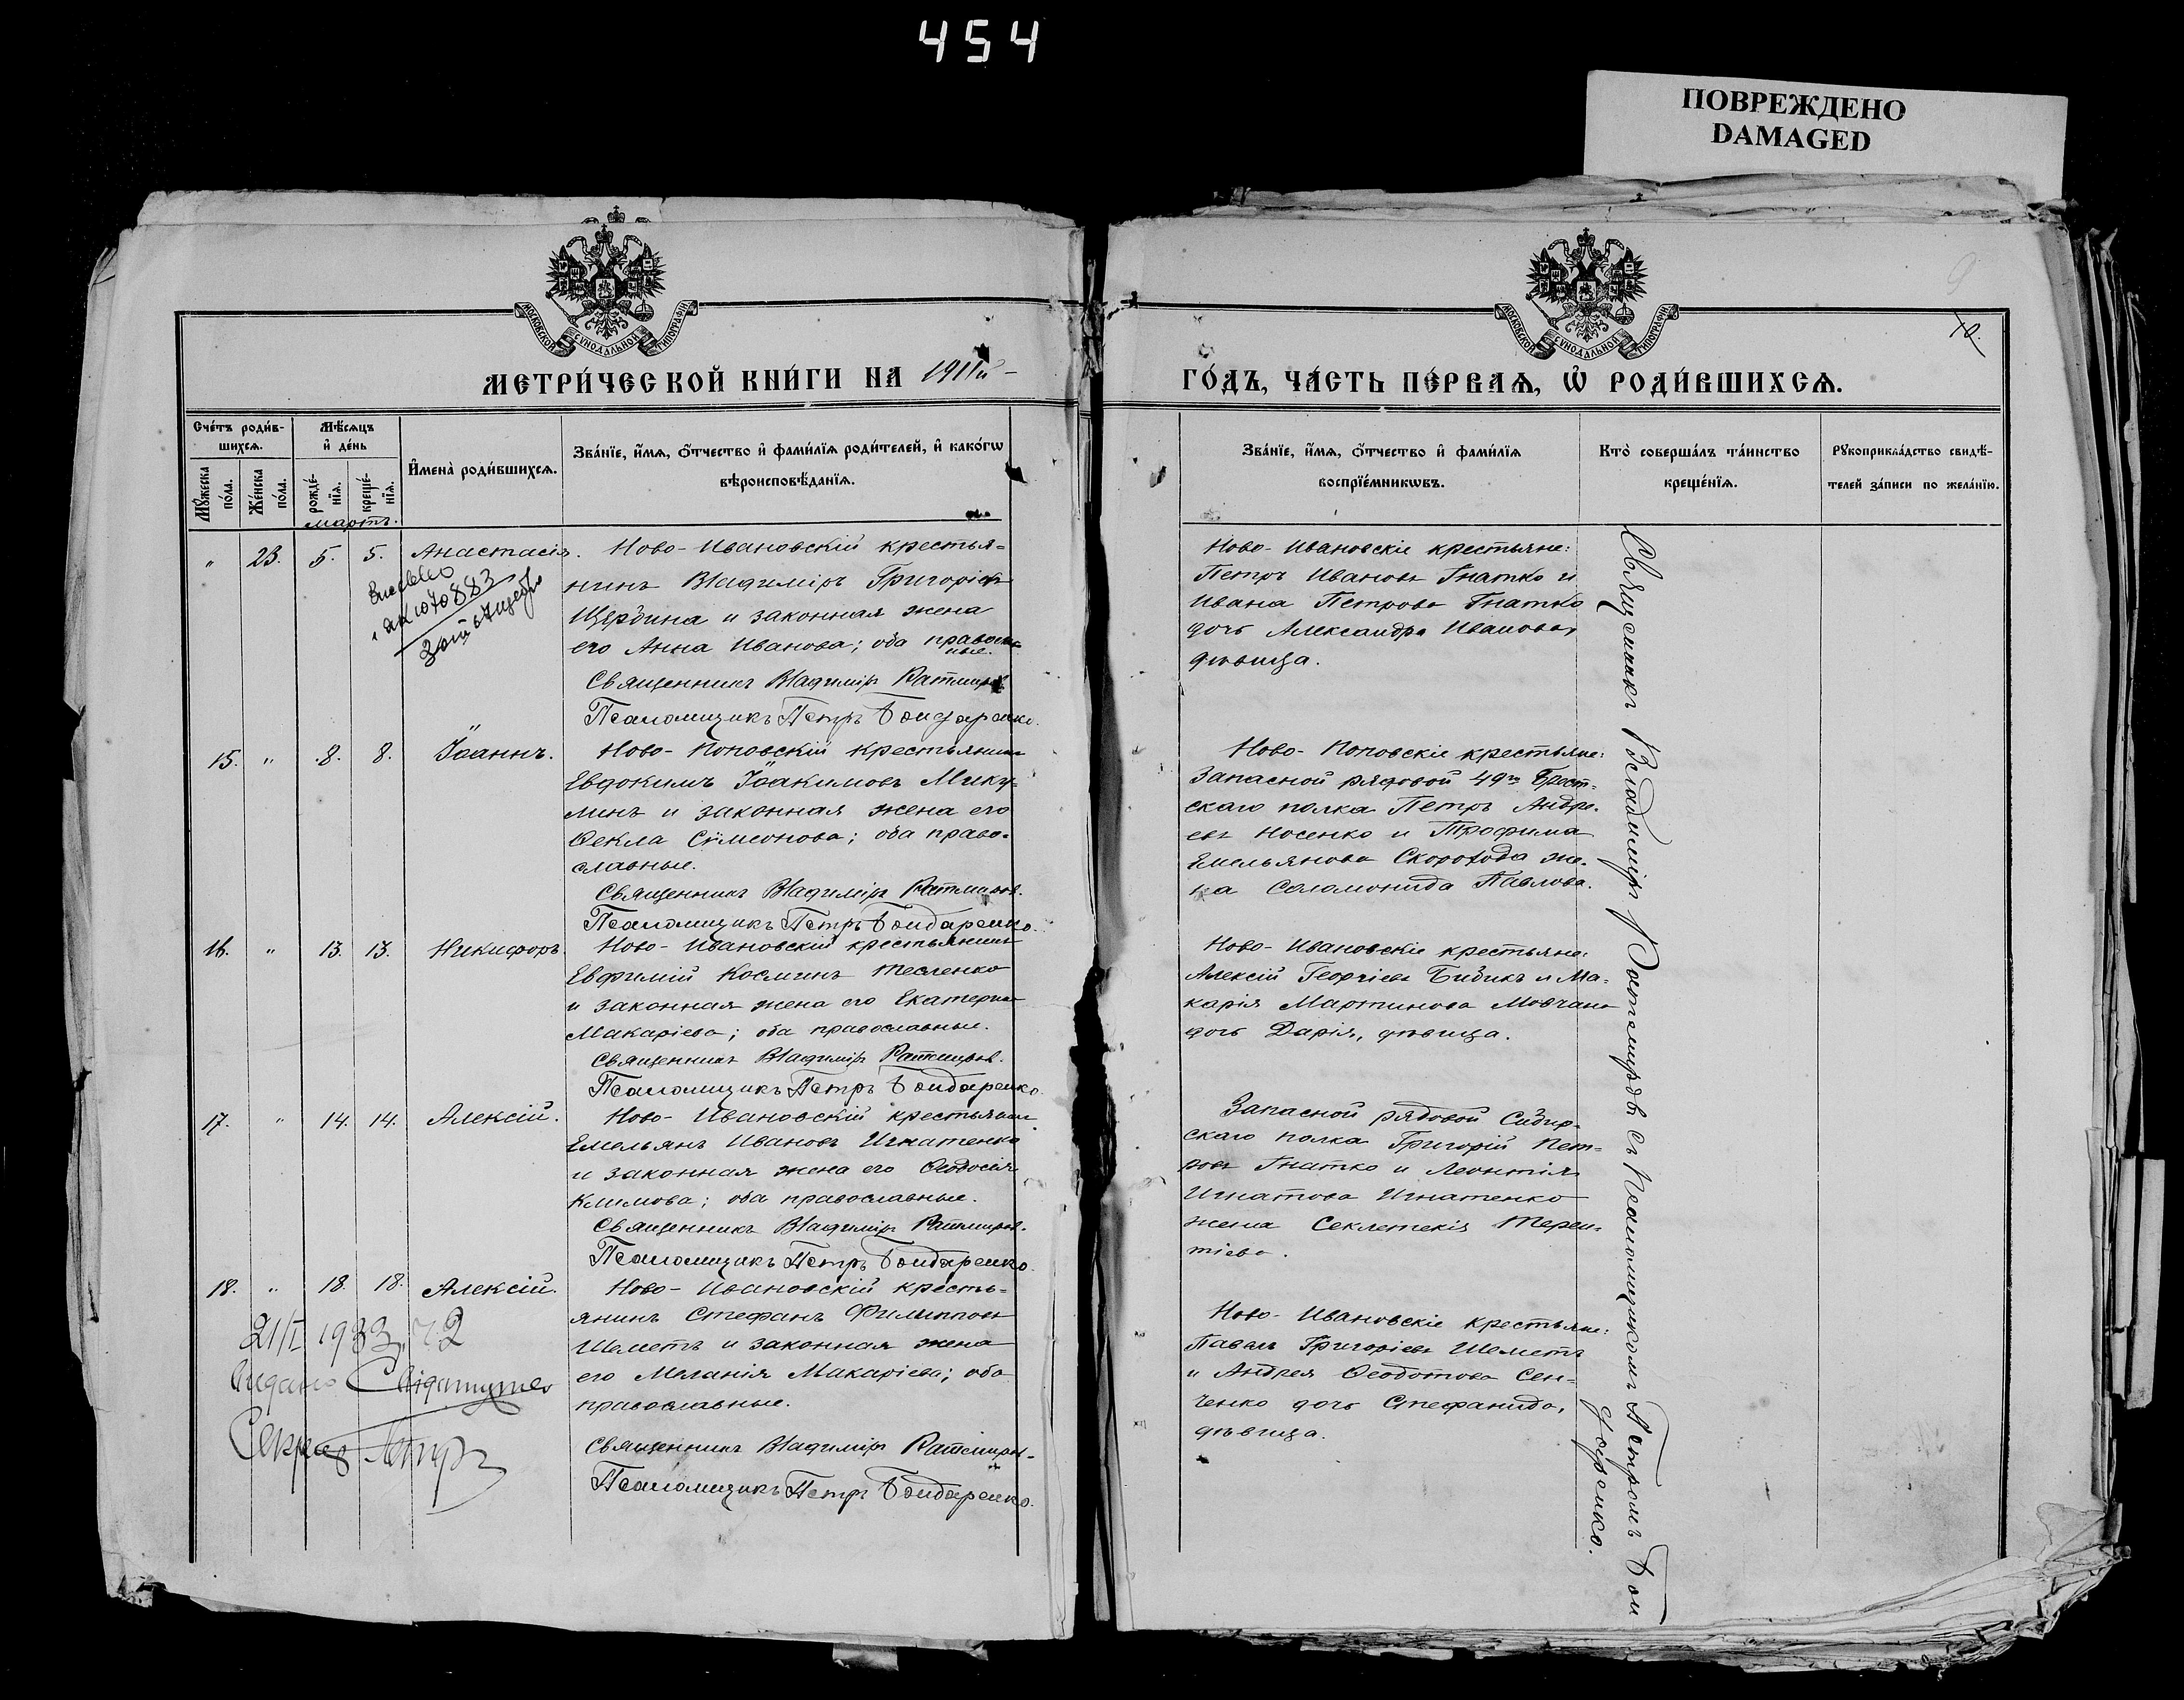 454
ПОВРЕЖДЕНО
DAMAGED
МОСКОВСКОЙ СѴНОДАЛЬНОЙ ТИПОГРАФІИ
МОСКОВСКОЙ СѴНОДАЛЬНОЙ ТИПОГРАФІИ
МЕТРИ́ЧЕСКОЙ КНИ́ГИ НА 1911й
ГО́ДЪ, ЧА́СТЬ ПЕ́РВАѦ, Ѽ РОДИ́ВШИХСѦ.
Сче́тъ роди́в-
шихсѧ.
Мѣ́сѧцъ
и҆ де́нь
Мꙋ́жеска по́ла.
Же́нска по́ла.
рожде́-нїѧ.
креще́-нїѧ.
И҆мена̀ роди́вшихсѧ.
Зва́нїе, и҆́мѧ, ѻ҆́тчество и҆ фами́лїѧ роди́телей, и҆ како́гѡ
вѣроисповѣ́данїѧ.
Зва́нїе, и҆́мѧ, ѻ҆́тчество и҆ фами́лїѧ
воспрїе́мникѡвъ.
Кто̀ соверша́лъ та́инство
креще́нїѧ.
Рꙋкоприкла́дство свидѣ́-
телей за́писи по жела́нїю.
мартъ.
" 23. 5. 5. Анастасія.
Ново-Ивановскій крестья-
нинъ Владиміръ Григоріев
Щербина и законная жена
его Анна Иванова; оба православ
ные.
Священникъ Владиміръ Ратмиров
Псаломщикъ Петръ Бондаренко.
Ново-Ивановскіе крестьяне:
Петръ Ивановъ Гнатко и
Ивана Петрова Гнатко
дочь Александра Иванова,
дѣвица.
15. " 8. 8. Іоаннъ.
Ново-Поповскій крестьянин
Евдокимъ Іоакимовъ Мику-
линъ и законная жена его
Ѳекла Сѵмеонова; оба право-
славные.
Священникъ Владиміръ Ратмиров.
Псаломщикъ Петръ Бондаренко.
Ново-Поповскіе крестьяне:
Запасной рядовой 49го Брест-
скаго полка Петръ Андре-
евъ Носенко и Трофима
Емельянова Скорохода же-
на Соломонида Павлова.
16. " 13. 13. Никифоръ.
Ново-Ивановскій крестьянинъ
Евфимій Косминъ Тесленко
и законная жена его Екатерина
Макаріева; оба православные.
Священникъ Владиміръ Ратмиров.
Псаломщикъ Петръ Бондаренко.
Ново-Ивановскіе крестьяне:
Алексій Георгіевъ Бибикъ и Ма-
карія Мартинова Мовчана
дочь Дарія, дѣвица.
17. " 14. 14. Алексій.
Ново-Ивановскій крестьянин
Емельянъ Ивановъ Игнатенко
и законная жена его Ѳеодосія
Климова; оба православные.
Священникъ Владиміръ Ратмиров.
Псаломщикъ Петръ Бондаренко.
Запасной рядовой Сибир-
скаго полка Григорій Пет-
ровъ Гнатко и Леонтія
Игнатова Игнатенко
жена Секлетекія Терен-
тіева.
18. " 18. 18. Алексій.
Ново-Ивановскій кресть-
янинъ Стефанъ Филипповъ
Шеметъ и законная жена
его Меланія Макаріева; оба
православные.
Священникъ Владиміръ Ратмиров.
Псаломщикъ Петръ Бондаренко.
Ново-Ивановскіе крестьяне:
Павелъ Григоріевъ Шеметъ
и Андрея Ѳеодотова Сен-
ченко дочь Стефанида,
дѣвица.
21/I 1933
Священникъ Владиміръ Ратмировъ съ Псаломщикомъ Петромъ Бон
даренко.